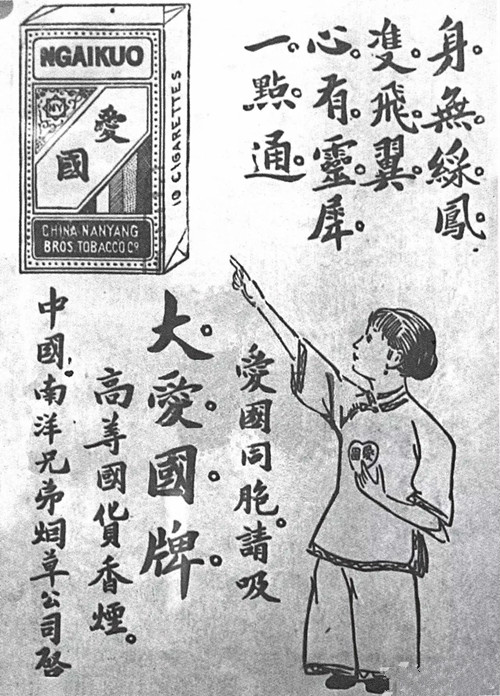 身無綵鳳
雙飛翼
心有靈犀
一點通
NGAIKUO
NY
愛
國
CHINA NANYANG
BROS. TOBACCO Cº
10 CIGARETTES
愛國同胞。請吸
大愛國牌
高等國貨香煙。
中國南洋兄弟烟草公司啓
愛國